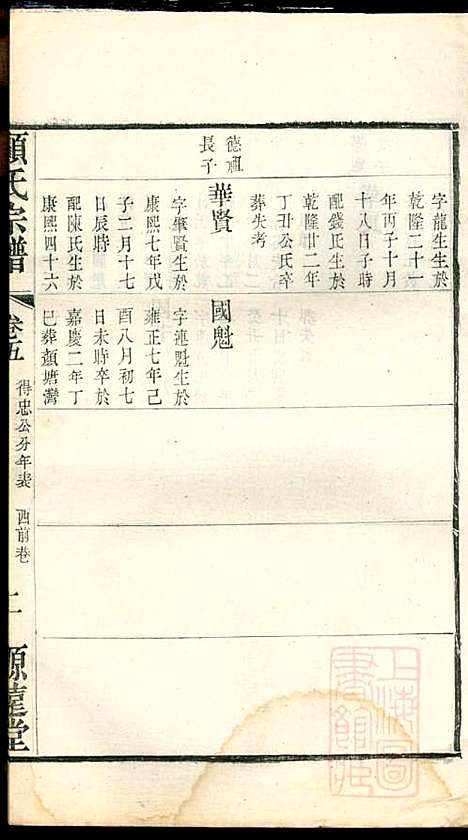 字龍生生於
乾隆二十一
年丙子十月
十八日子時
配錢氏生於
乾隆廿二年
丁丑公氏卒
葬失考
德祖
長子
華賢
字肇賢生於
康熙七年戊
子二月十七
日辰時
配陳氏生於
康熙四十六
國魁
字連魁生於
雍正七年己
酉八月初七
日未時卒於
嘉慶二年丁
巳葬顏塘灣
顧氏宗譜
卷五
得忠公分年表
西前巷
二
源薳堂
上海圖書館藏